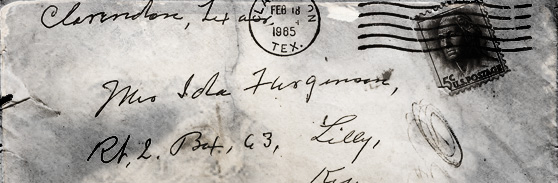 Clarendon, Texas,
FEB 18
1965
TEX.
5c
U.S. POSTAGE
Mrs Ida Furguson,
Rt. 2. Box, 63, Lilly,